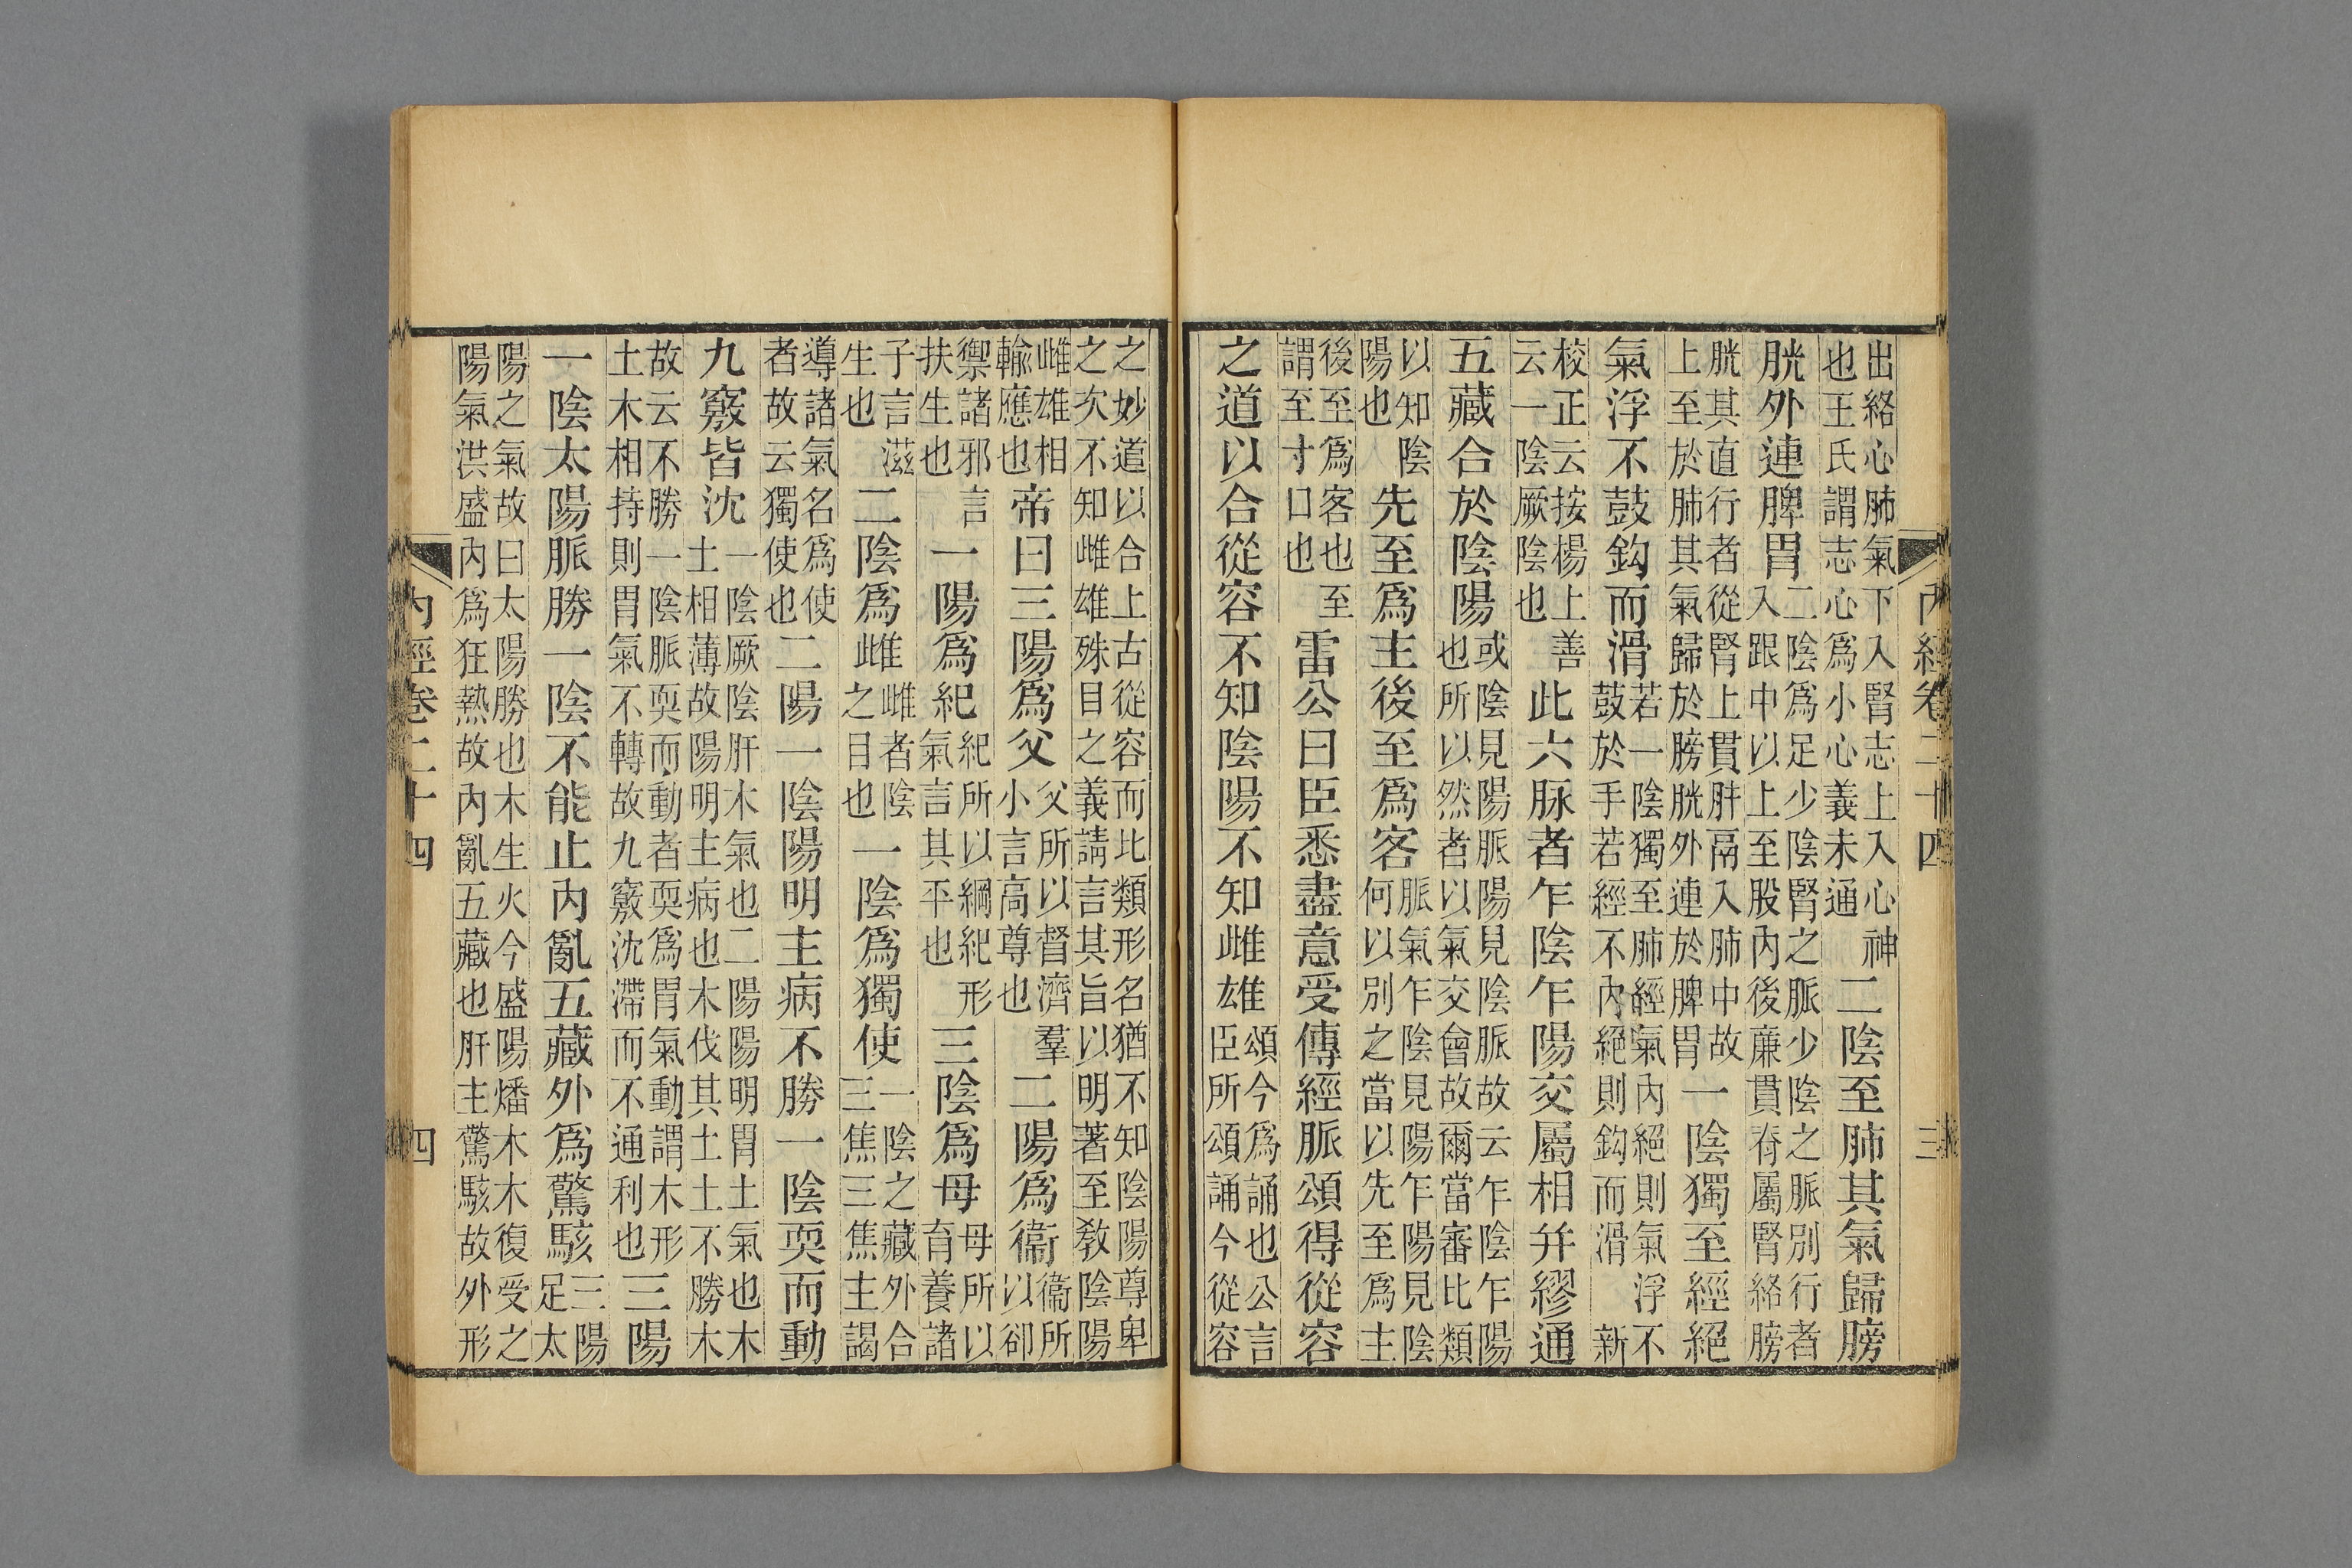 內經卷二十四 三
出絡心肺氣下入腎志上入心神也王氏謂志心爲小心義未通二陰至肺其氣歸膀
胱外連脾胃二陰爲足少陰腎之脈少陰之脈別行者入跟中以上至股內後廉貫脊屬腎絡膀
胱其直行者從腎上貫肝鬲入肺中故上至於肺其氣歸於膀胱外連於脾胃一陰獨至經絕
氣浮不鼓鈎而滑若一陰獨至肺經氣內絕則氣浮不鼓於手若經不內絕則鈎而滑新
校正云按楊上善云一陰厥陰也此六脉者乍陰乍陽交屬相幷繆通
五藏合於陰陽或陰見陽脈陽見陰脈故云乍陰乍陽也所以然者以氣交會故爾當審比類
以知陰陽也先至爲主後至爲客脈氣乍陰見陽乍陽見陰何以別之當以先至爲主
後至爲客也至謂至寸口也雷公曰臣悉盡意受傳經脈頌得從容
之道以合從容不知陰陽不知雌雄頌今爲誦也公言臣所頌誦今從容
之妙道以合上古從容而比類形名猶不知陰陽尊卑之次不知雌雄殊目之義請言其旨以明著至教陰陽
雌雄相輸應也帝曰三陽爲父父所以督濟羣小言高尊也二陽爲衞衞所以卻
禦諸邪言扶生也一陽爲紀紀所以綱紀形氣言其平也三陰爲母母所以育養諸
子言滋生也二陰爲雌雌者陰之目也一陰爲獨使一陰之藏外合三焦三焦主謁
導諸氣名爲使者故云獨使也二陽一陰陽明主病不勝一陰耎而動
九竅皆沈一陰厥陰肝木氣也二陽陽明胃土氣也木土相薄故陽明主病也木伐其土土不勝木
故云不勝一陰脈耎而動者耎爲胃氣動謂木形土木相持則胃氣不轉故九竅沈滯而不通利也三陽
一陰太陽脈勝一陰不能止內亂五藏外爲驚駭三陽足太
陽之氣故曰太陽勝也木生火今盛陽燔木木復受之陽氣洪盛內爲狂熱故內亂五藏也肝主驚駭故外形
內經卷二十四 四